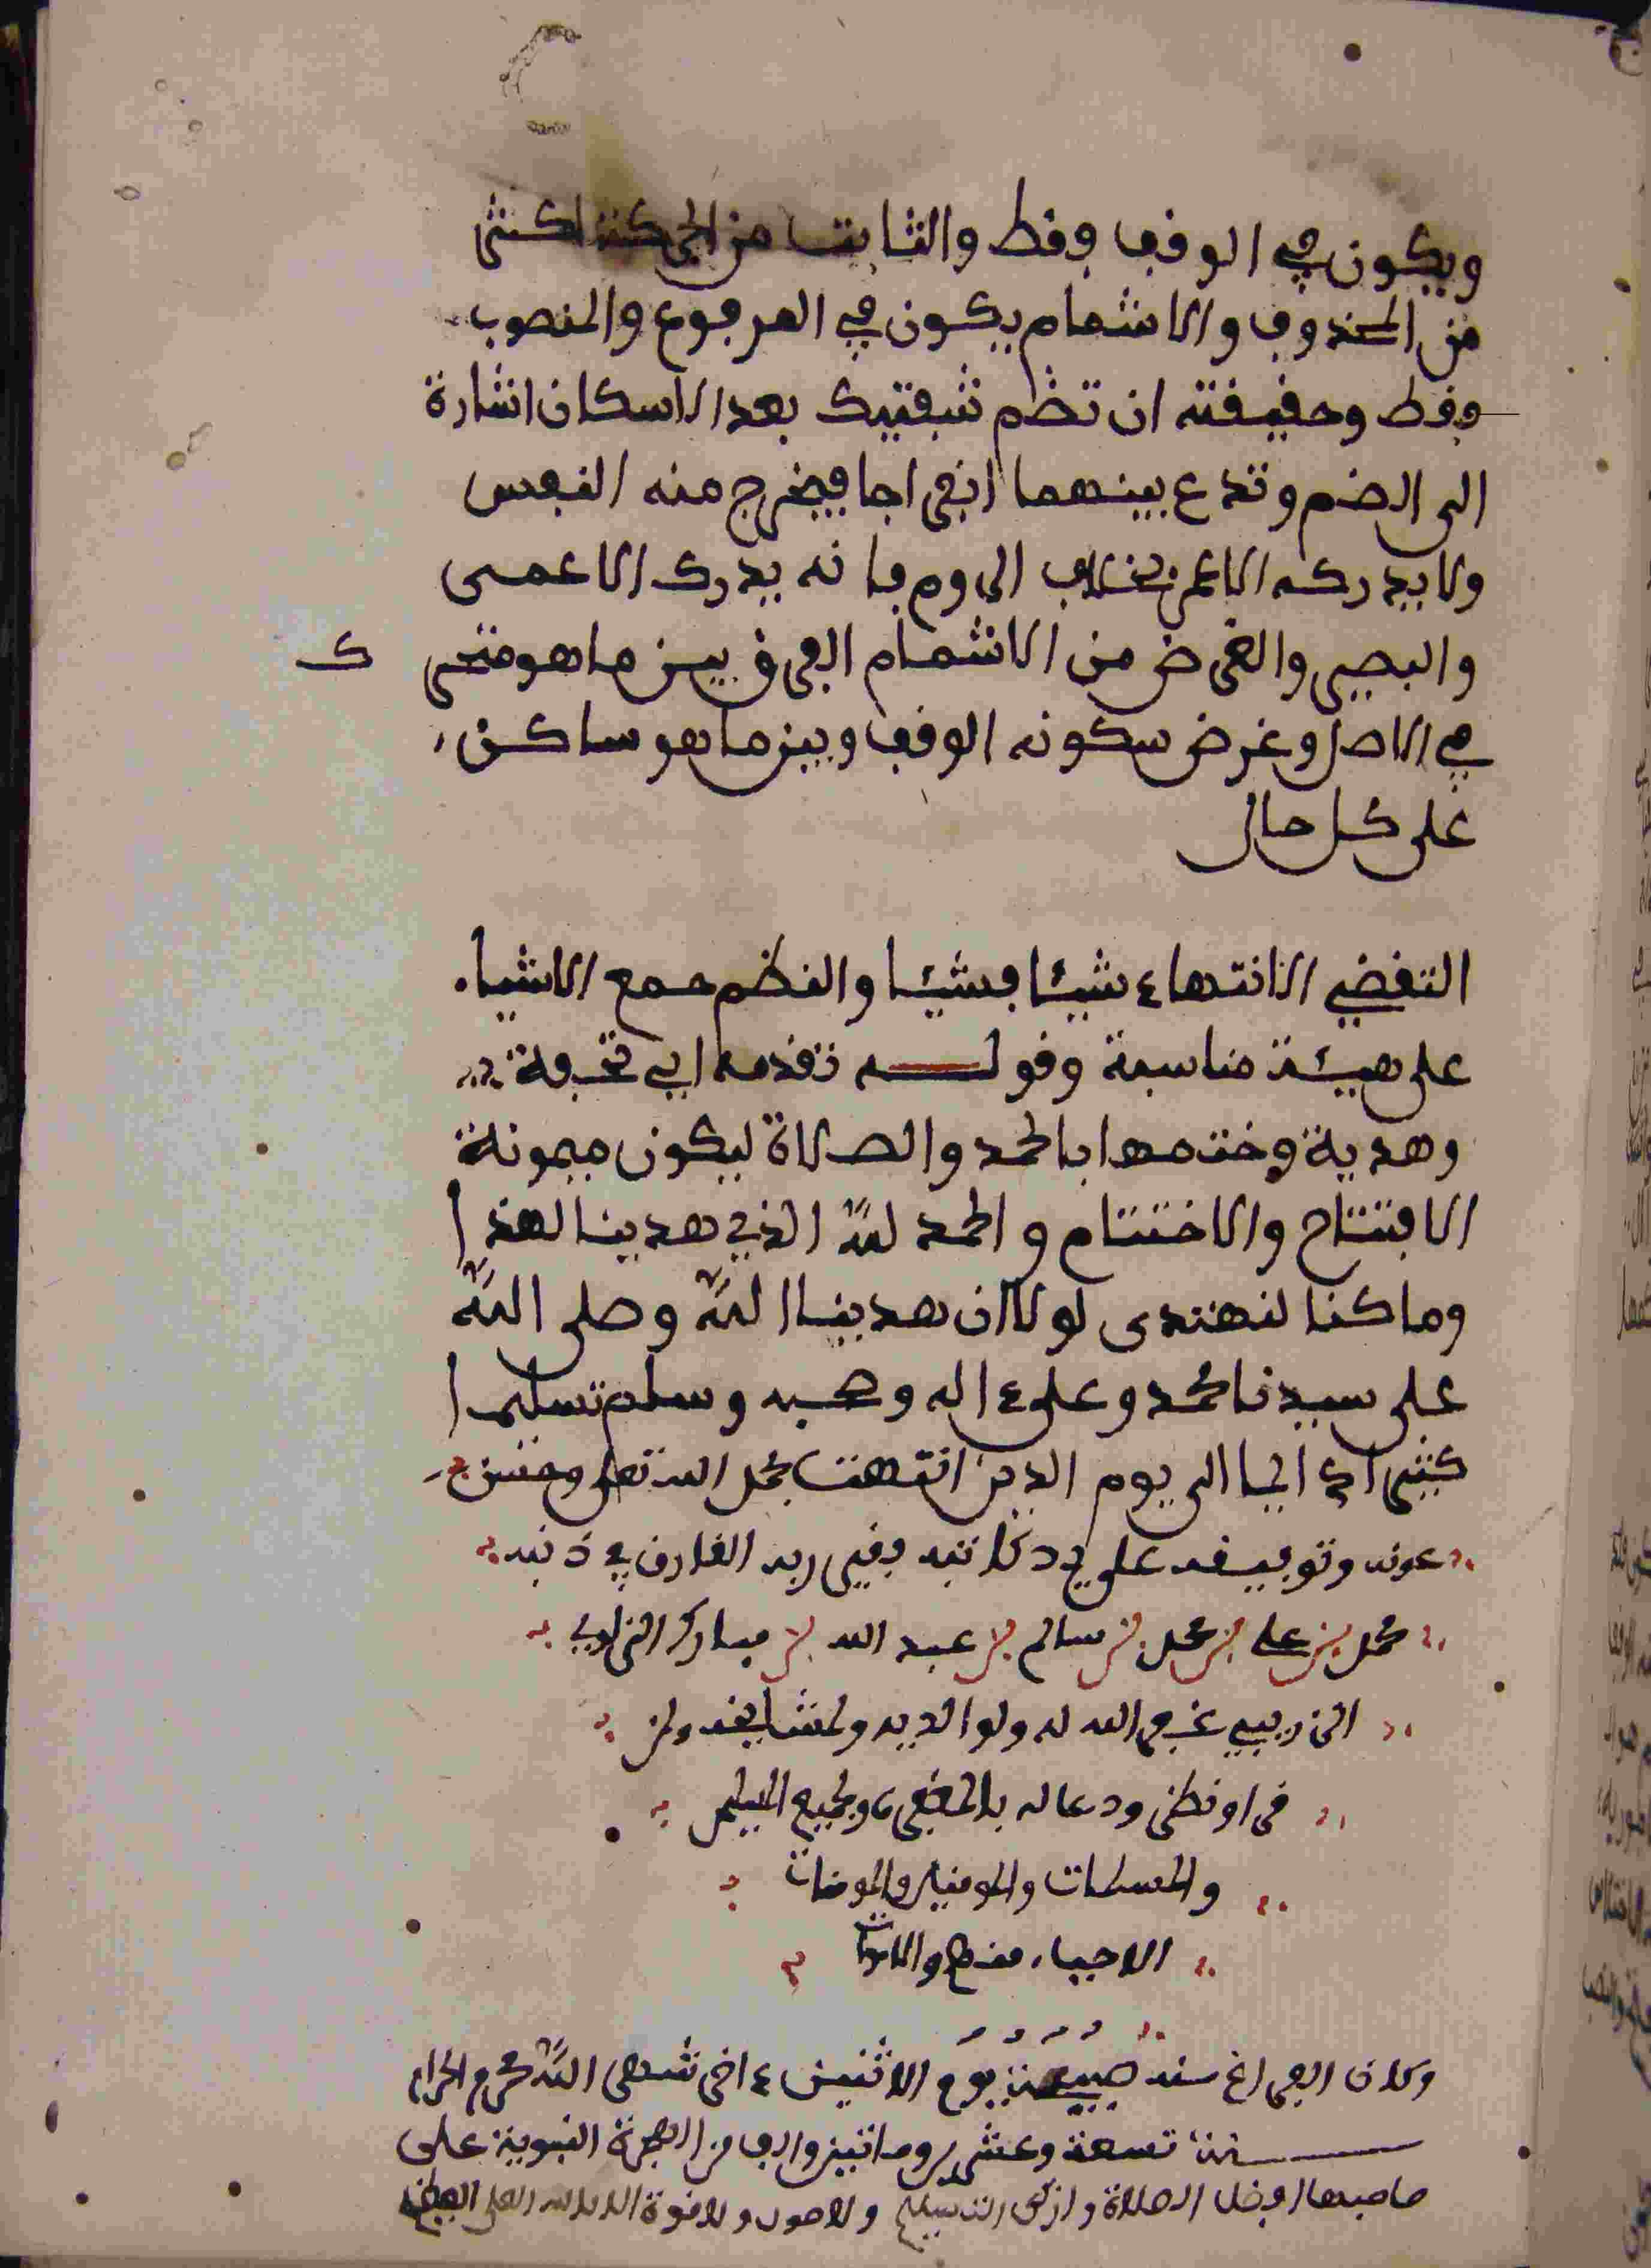 ويكون في الوقف فقط والثابت من الحركة اكثر
من المحذوف والاشمام يكون في المرفوع والمنصوب
فقط وحقيقته ان تظم شفتيك بعد الاسكان اشارة
الى الضم وتدع بينهما انفراجا فيخرج منه النفس
ولا يدركه الاعمى بخلاف الروم فانه يدرك الاعمى
والبصير والغرض من الاشمام الفرق بين ما هو متحرك
في الاصل وعرض سكونه الوقف وبين ما هو ساكن
على كل حال
التقضي الانتهاء شيئا فشيئا والنظم جمع الاشياء
على هيئة مناسبة وقوله تقدمه اي تحفة
وهدية وختمها بالحمد والصلاة ليكون ميمونة
الافتتاح والاختتام و الحمد لله الذي هدينا لهذا
وما كنا لنهتدى لولا ان هدينا الله وصلى الله
على سيدنا محمد وعلى ءاله وصحبه وسلم تسليما
كثيرا الى يوم الدين انتهت بحمد الله تعلى وحسن
عونه وتوفيقه على يد كاتبه فقير ربه الغارق في ذنبه
محمد بن علي بن محمد بن سالم بن عبد الله بن مبارك
غفر الله له ولوالديه ولمشايخه ولمن
قرا او نظر ودعا له بالمغفرة ولجميع المسلمين
والمسلمات والمومنين والمومنات
الاحياء منهم والاموات
وكان الفراغ منه صبيحة يوم الاثنين ءاخر شهر الله محرم الحرام
سنة تسعة وعشرين ومائتين والف من الهجرة النبوية على
صاحبها افضل الصلاة وازكى التسليم ولا حول ولا قوة الا بالله العلي العظيم